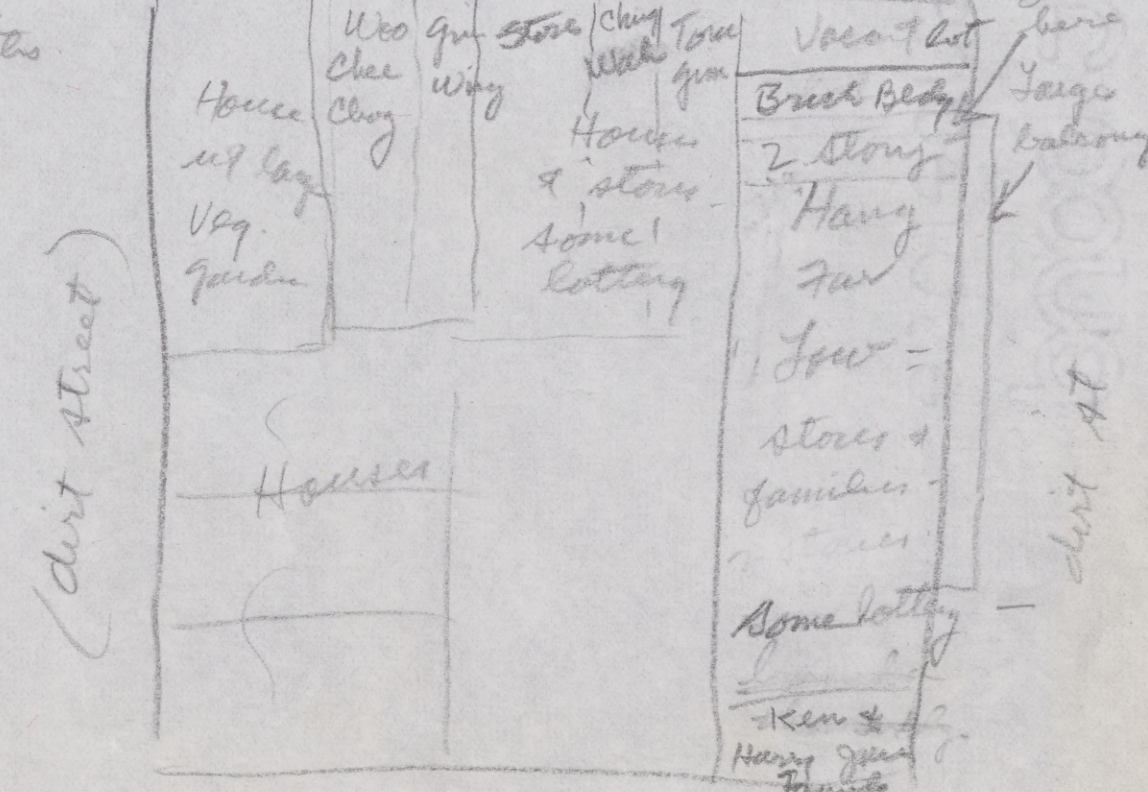 (dirt street)
House
w/ large
Veg.
garden
Woo
Chee
Chog
Gin
Wing
Store
Ching
Wah
Tom
Gim
House
& store
some
lottery
Houses
Vacant lot
Brick Bldg
2 story
Hang
Far
Low =
stores &
families -
2 stories
Some lottery
Ken &
Harry
here
Large
balcony
dirt st